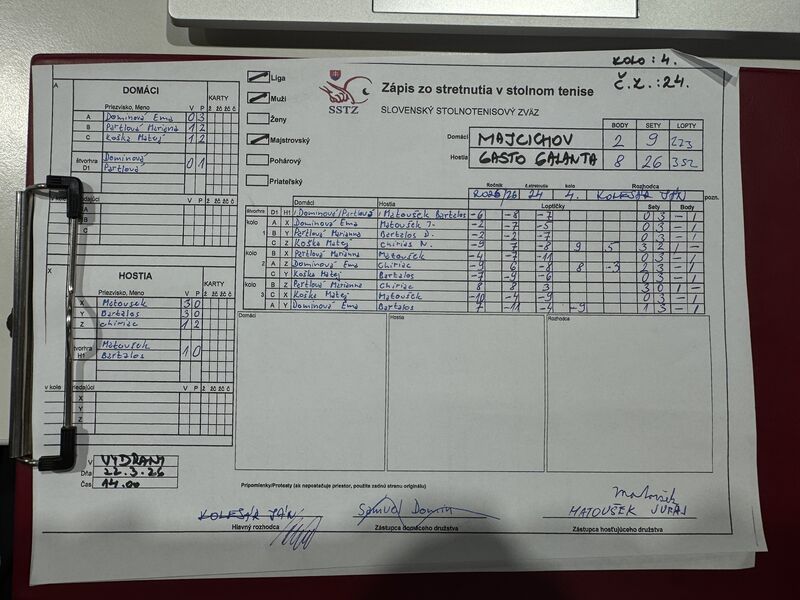 KOLO: 4.
Č.Z.: 24.
SSTZ
Zápis zo stretnutia v stolnom tenise
SLOVENSKÝ STOLNOTENISOVÝ ZVÄZ
Liga
Muži
Ženy
Majstrovský
Pohárový
Priateľský
BODY SETY LOPTY
Domáci MAJCICHOV 2 9 273
Hostia GASTO GALANTA 8 26 352
A
DOMÁCI
Priezvisko, Meno V P KARTY ž žč žč č
A Dominová Ema 0 3
B Pertlová Marianna 1 2
C Koška Matej 1 2
štvorhra D1 Dominová Pertlová 0 1
V kole striedajúci
A
B
C
X
HOSTIA
Priezvisko, Meno V P KARTY ž žč žč č
X Matoušek 3 0
Y Bartalos 3 0
Z Chiriac 1 2
štvorhra H1 Matoušek Bartalos 1 0
v kole striedajúci V P ž žč žč č
X
Y
Z
Ročník č.stretnutia kolo Rozhodca
2025/26 24 4. KOLESÁR JÁN pozn.
Domáci Hostia Loptičky Sety Body
štvorhra D1 H1 Dominová/Pertlová Matoušek Bartalos -6 -8 -7 0 3 - 1
kolo 1 A X Dominová Ema Matoušek J. -2 -7 -5 0 3 - 1
B Y Pertlová Marianna Bartalos D. -2 -2 -7 0 3 - 1
C Z Koška Matej Chiriac N. -9 7 -8 9 5 3 2 1 -
kolo 2 B X Pertlová Marianna Matoušek -4 -7 -11 0 3 - 1
A Z Dominová Ema Chiriac -9 6 -8 8 -3 2 3 - 1
C Y Koška Matej Bartalos -7 -9 -6 0 3 - 1
kolo 3 B Z Pertlová Marianna Chiriac 8 8 3 3 0 1 -
C X Koška Matej Matoušek -10 -4 -9 0 3 - 1
A Y Dominová Ema Bartalos 7 -11 -4 -9 1 3 - 1
Domáci Hostia Rozhodca
V VYDRANY
Dňa 22.3.26
Čas 14.00
Pripomienky/Protesty (ak nepostačuje priestor, použite zadnú stranu originálu)
KOLESÁR JÁN
Hlavný rozhodca
Samuel Domin
Zástupca domáceho družstva
Matoušek
MATOUŠEK JURAJ
Zástupca hosťujúceho družstva